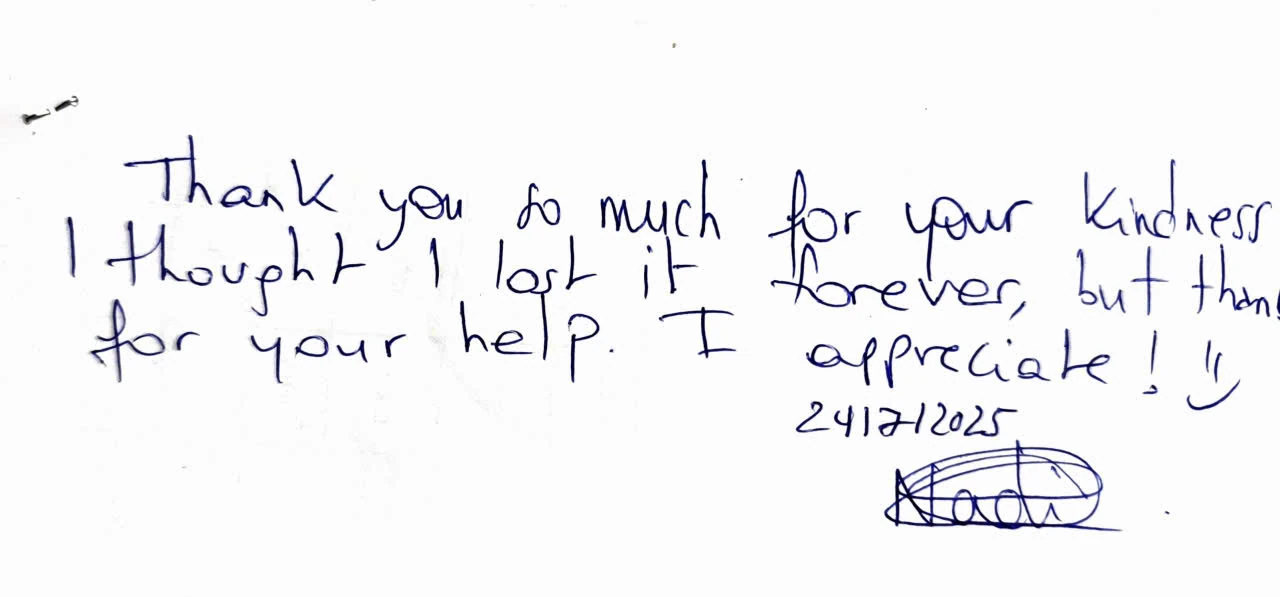 Thank you so much for your kindness
I thought I lost it forever, but than
for your help. I appreciate! :)
24/7/2025